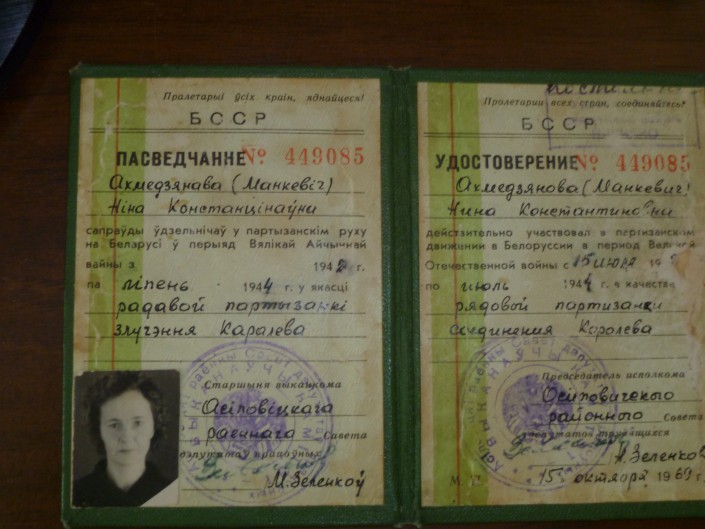 Пралетарыі ўсіх краін, яднайцеся!
БССР
ПАСВЕДЧАННЕ № 449085
Ахмедзянава (Манкевіч)
Ніна Констанцінаўни
сапраўды ўдзельнічаў у партызанскім руху
на Беларусі ў перыяд Вялікай Айчыннай
вайны з 194 г.
па ліпень 1944 г. у якасці
радавой партызанкі
злучэння Каралева
Старшыня выканкома
Асіповіцкага
раённага Савета
дэпутатаў працоўных
М. Зеленкоў
Пролетарии всех стран, соединяйтесь!
БССР
УДОСТОВЕРЕНИЕ № 449085
Ахмедзянова (Манкевич)
Нина Константиновни
действительно участвовал в партизанском
движении в Белоруссии в период Великой
Отечественной войны с 15 июля 194
по июль 1944 г. в качестве
рядовой партизанки
соединения Королева
Председатель исполкома
Осиповичского
районного Совета
депутатов трудящихся
Зеленков
М. П. 15 октября 1969 г.